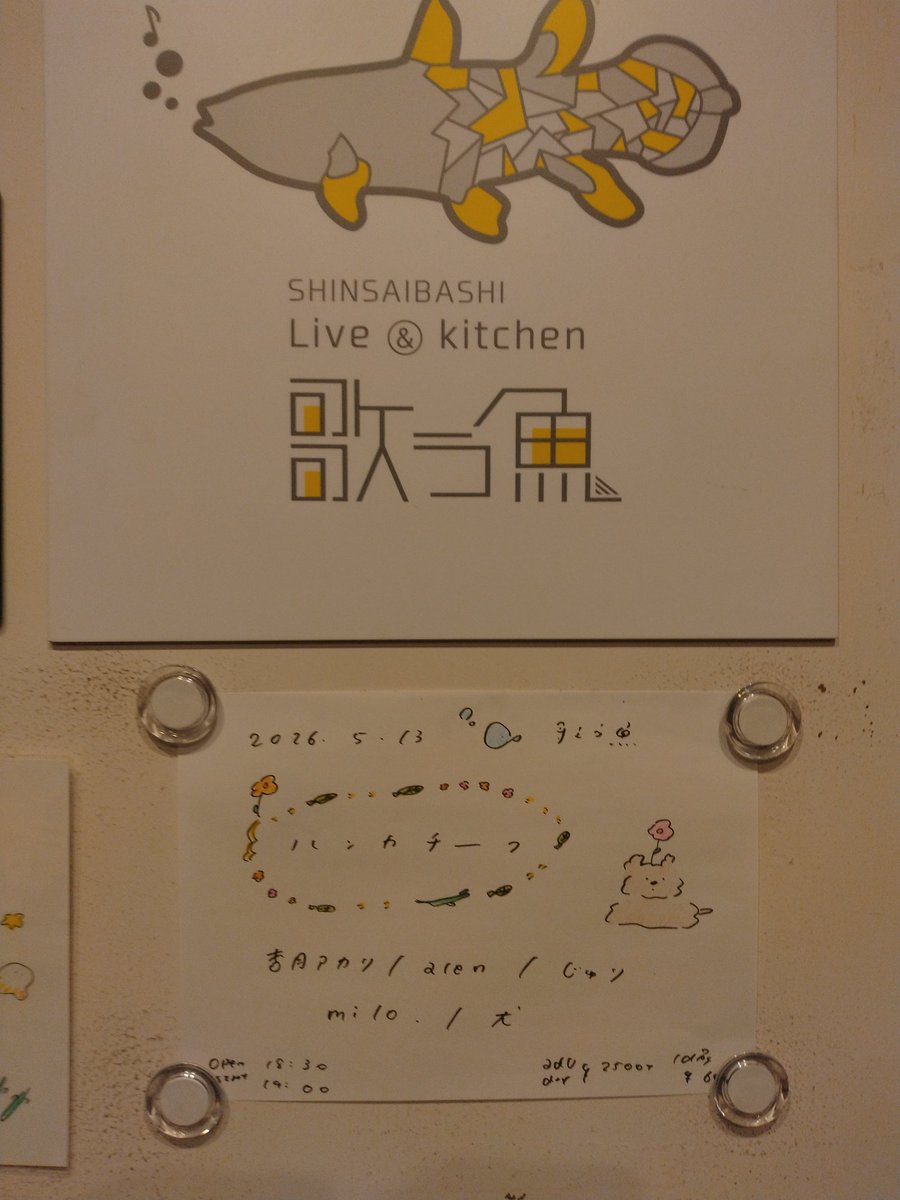 SHINSAIBASHI
Live & kitchen
歌う魚
2026. 5.13 歌う魚
ハンカチーフ
香月アカリ / aren / じゅり
milo. / 犬
open 18:30
start 19:00
adv ¥2500+